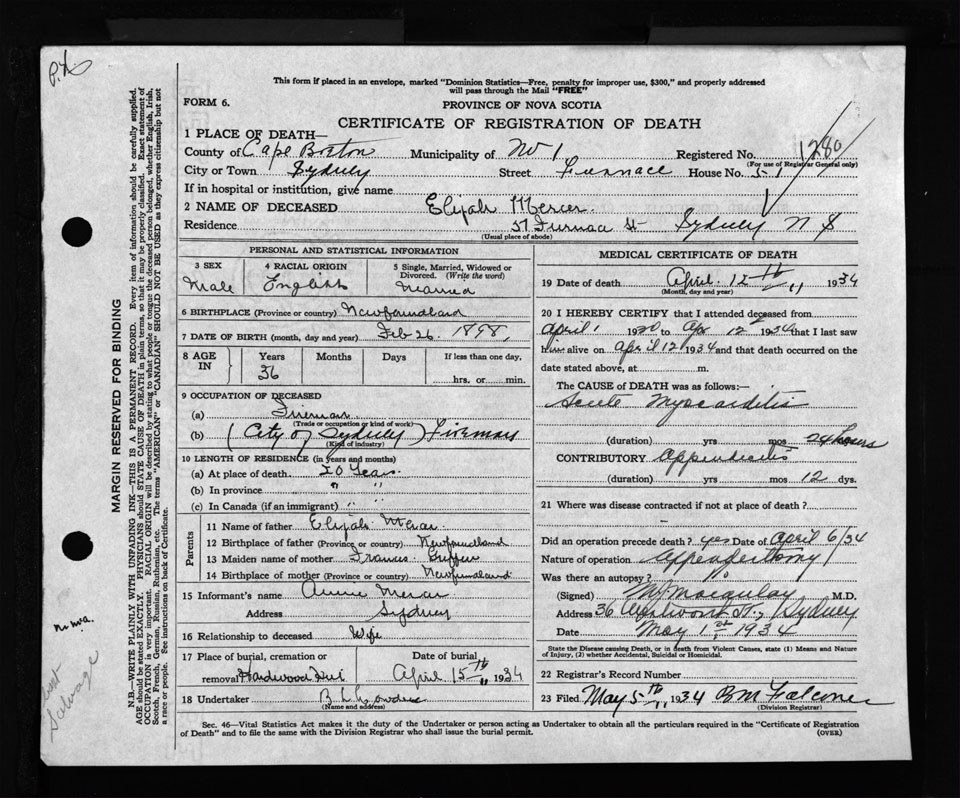 P.X
This form if placed in an envelope, marked "Dominion Statistics—Free, penalty for improper use, $300," and properly addressed
will pass through the Mail "FREE"
FORM 6.
PROVINCE OF NOVA SCOTIA
CERTIFICATE OF REGISTRATION OF DEATH
1 PLACE OF DEATH—
County of Cape Breton Municipality of No 1 Registered No. 1280
(For use of Registrar General only)
City or Town Sydney Street Furnace House No. 51
If in hospital or institution, give name
2 NAME OF DECEASED Elijah Mercer
Residence 51 Furnace St Sydney N S
(Usual place of abode)
PERSONAL AND STATISTICAL INFORMATION
3 SEX
Male
4 RACIAL ORIGIN
English
5 Single, Married, Widowed or
Divorced. (Write the word)
Married
6 BIRTHPLACE (Province or country) Newfoundland
7 DATE OF BIRTH (month, day and year) Feb 26. 1898,
8 AGE
IN
Years
36
Months
Days
If less than one day,
hrs. or min.
9 OCCUPATION OF DECEASED
(a) Fireman
(Trade or occupation or kind of work)
(b) (City of Sydney) Fireman
(Kind of industry)
10 LENGTH OF RESIDENCE (in years and months)
(a) At place of death 20 Years.
(b) In province " "
(c) In Canada (if an immigrant) " "
Parents
11 Name of father Elijah Mercer
12 Birthplace of father (Province or country) Newfoundland
13 Maiden name of mother
14 Birthplace of mother (Province or country) Newfoundland
15 Informant's name Annie Mercer
Address Sydney
16 Relationship to deceased Wife
17 Place of burial, cremation or
removal Hardwood Hill
Date of burial
April 15th 1934
18 Undertaker B. L.
(Name and address)
MEDICAL CERTIFICATE OF DEATH
19 Date of death April. 12th 1934
(Month, day and year)
20 I HEREBY CERTIFY that I attended deceased from
April 1 19 to Apr 12 1934 that I last saw
him alive on April 12 1934 and that death occurred on the
date stated above, at m.
The CAUSE OF DEATH was as follows:—
Acute Myocarditis
(duration) yrs mos 24 hours
CONTRIBUTORY Appendicitis
(duration) yrs mos 12 dys.
21 Where was disease contracted if not at place of death?
Did an operation precede death? yes Date of April 6/34
Nature of operation Appendectomy
Was there an autopsy?
(Signed) M.D.
Address 36 St., Sydney
Date May 1st 1934
State the Disease causing Death, or in death from Violent Causes, state (1) Means and Nature
of Injury, (2) whether Accidental, Suicidal or Homicidal.
22 Registrar's Record Number
23 Filed May 5th 1934
(Division Registrar)
Sec. 46—Vital Statistics Act makes it the duty of the Undertaker or person acting as Undertaker to obtain all the particulars required in the "Certificate of Registration
of Death" and to file the same with the Division Registrar who shall issue the burial permit.
(OVER)
MARGIN RESERVED FOR BINDING
N.B.—WRITE PLAINLY WITH UNFADING INK—THIS IS A PERMANENT RECORD. Every item of information should be carefully supplied.
AGE should be stated EXACTLY. PHYSICIANS should STATE CAUSE OF DEATH in plain terms, so that it may be properly classified. Exact statement of
OCCUPATION is very important. RACIAL ORIGIN will be described by stating to what people or tongue the deceased person belonged, whether English, Irish,
Scotch, French, German, Russian, Ruthenian, etc. The terms "AMERICAN" or "CANADIAN" SHOULD NOT BE USED as they express citizenship but not
a race or people. See instructions on back of Certificate.